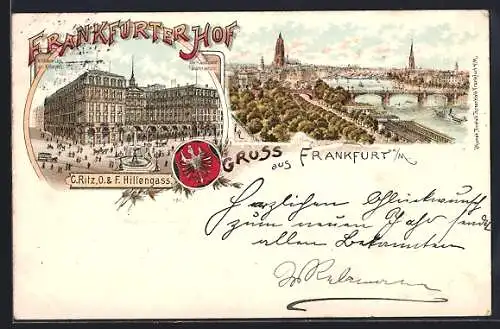 FRANKFURTER HOF
C. Ritz, O. & F. Hillengass.
GRUSS aus FRANKFURT a/M.
Herzlichen Glückwunsch
zum neuen Jahr sendet
allen Bekannten